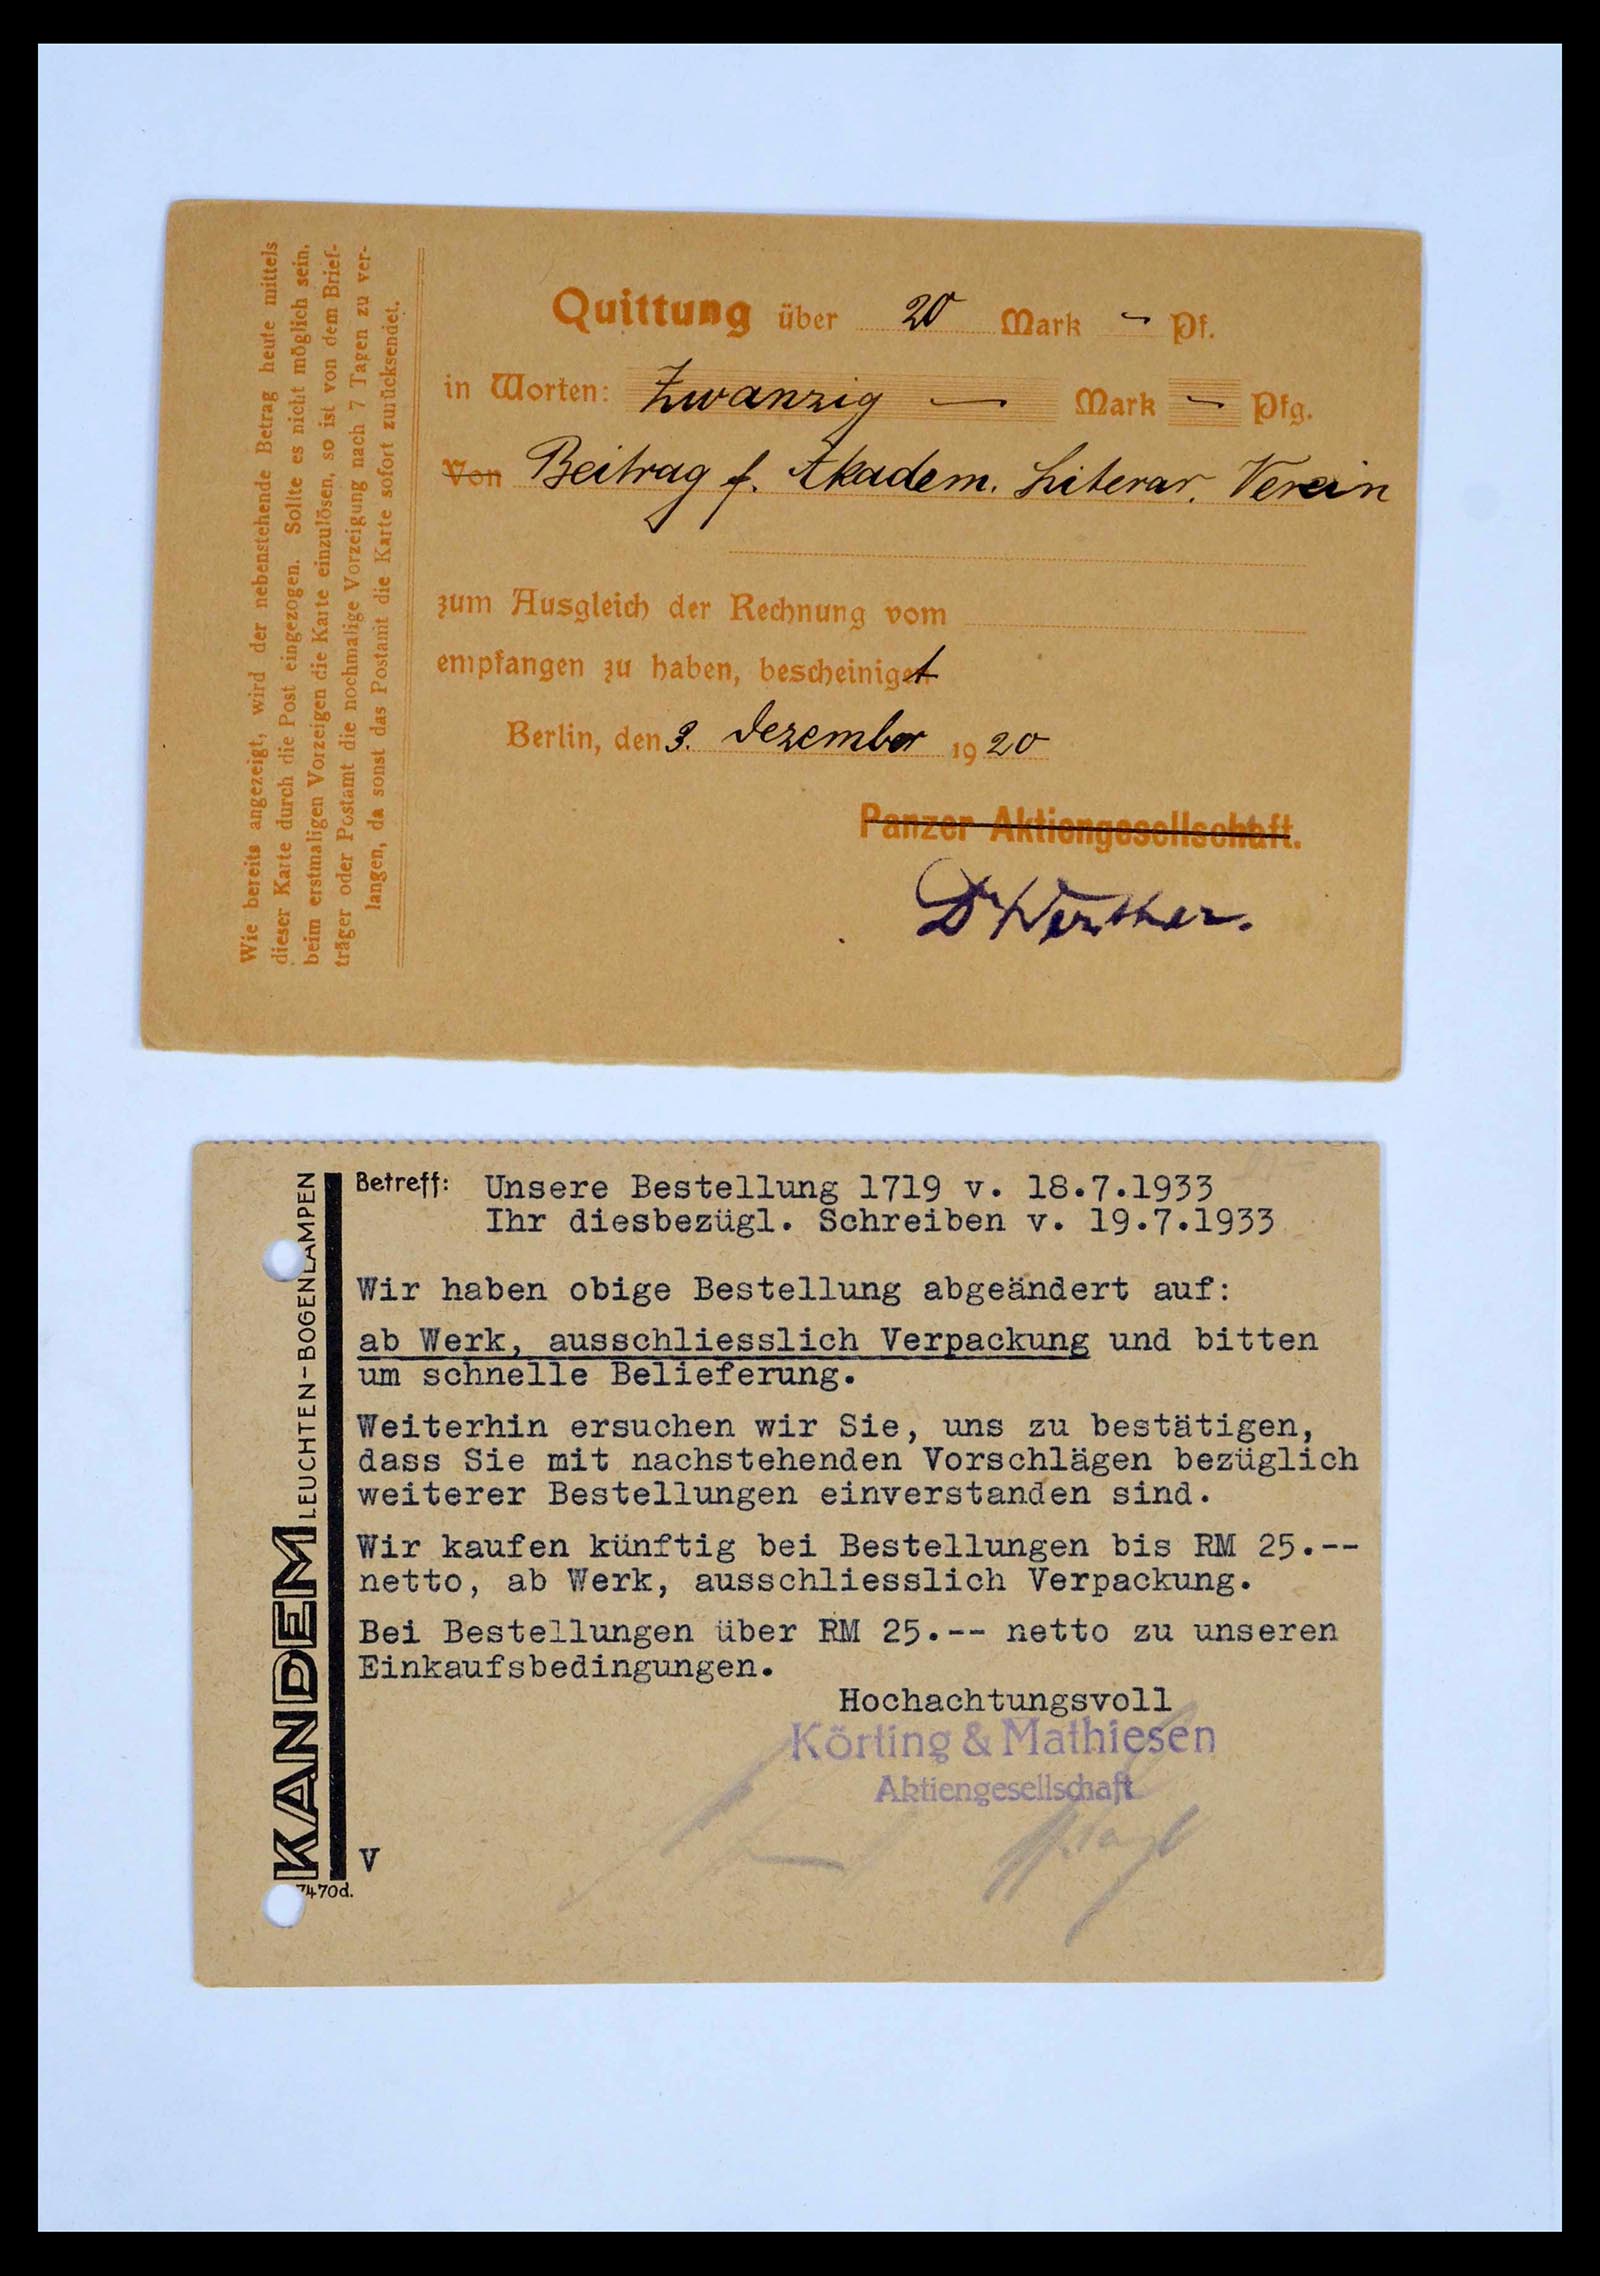 Wie bereits angezeigt, wird der nebenstehende Betrag heute mittels
dieser Karte durch die Post eingezogen. Sollte es nicht möglich sein,
beim erstmaligen Vorzeigen die Karte einzulösen, so ist von dem Brief-
träger oder Postamt die nochmalige Vorzeigung nach 7 Tagen zu ver-
langen, da sonst das Postamt die Karte sofort zurücksendet.
Quittung über 20 Mark - Pf.
in Worten: Zwanzig — Mark - Pfg.
Von Beitrag f. Akadem. Literar. Verein
zum Ausgleich der Rechnung vom
empfangen zu haben, bescheinigt
Berlin, den 3. Dezember 1920
Panzer Aktiengesellschaft.
Dr Werther.
KANDEM LEUCHTEN-BOGENLAMPEN
Betreff: Unsere Bestellung 1719 v. 18.7.1933
Ihr diesbezügl. Schreiben v. 19.7.1933
Wir haben obige Bestellung abgeändert auf:
ab Werk, ausschliesslich Verpackung und bitten
um schnelle Belieferung.
Weiterhin ersuchen wir Sie, uns zu bestätigen,
dass Sie mit nachstehenden Vorschlägen bezüglich
weiterer Bestellungen einverstanden sind.
Wir kaufen künftig bei Bestellungen bis RM 25.--
netto, ab Werk, ausschliesslich Verpackung.
Bei Bestellungen über RM 25.-- netto zu unseren
Einkaufsbedingungen.
Hochachtungsvoll
Körting & Mathiesen
Aktiengesellschaft
V
7470d.